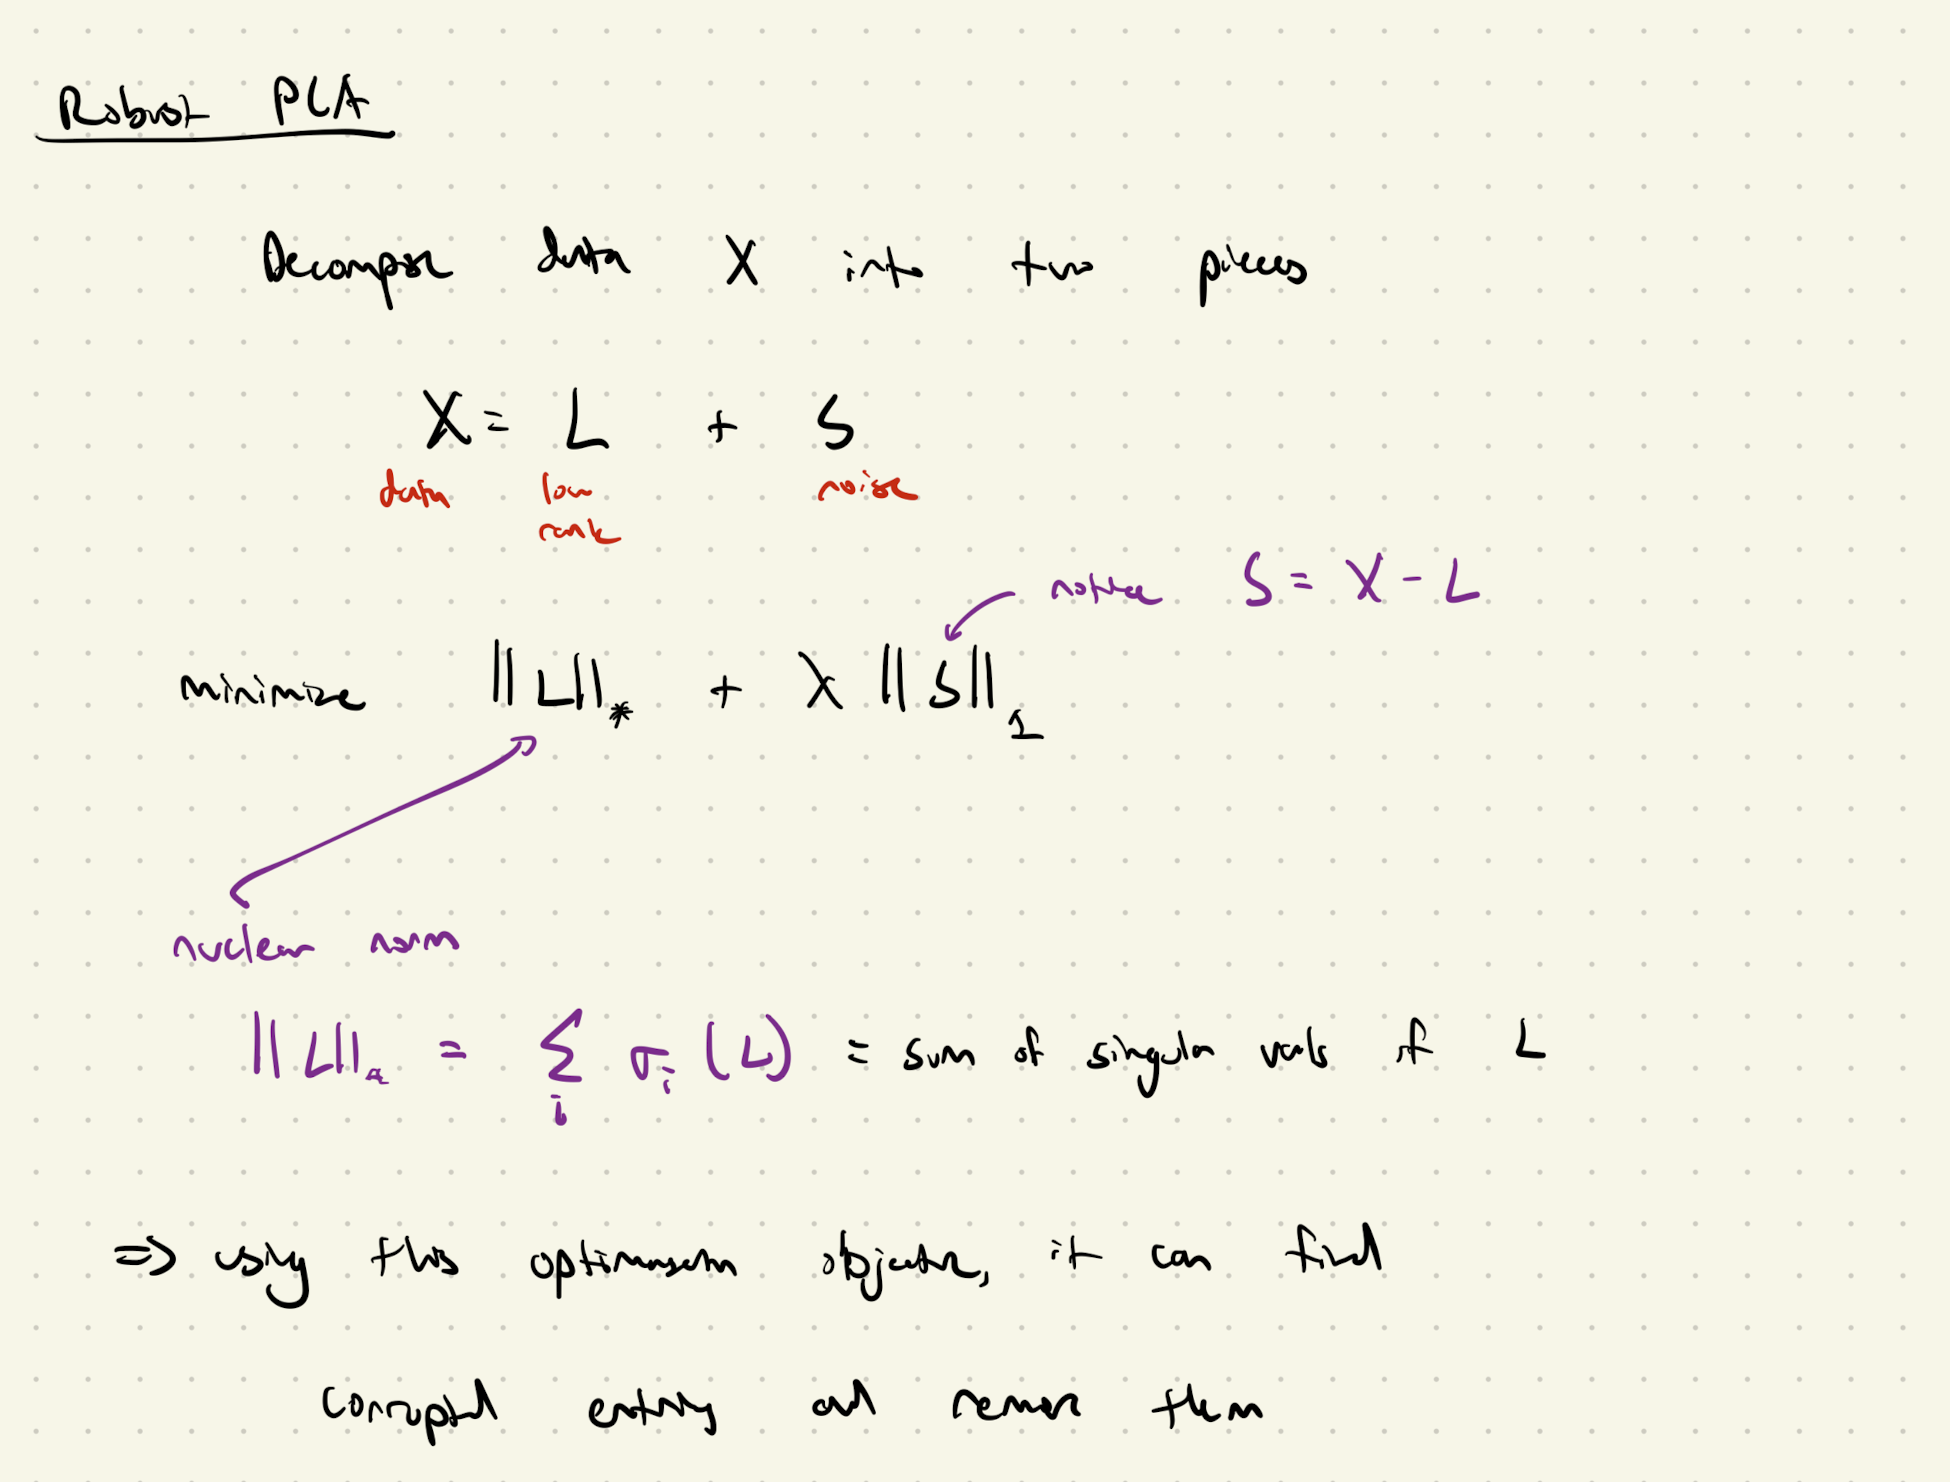 Robust PCA
Decompose data X into two pieces
X = L + S
data low rank noise
notice S = X - L
minimize ||L||_* + λ ||S||_1
nuclear norm
||L||_* = Σ_i σ_i (L) = sum of singular vals of L
⇒ using this optimization objective, it can find
corrupted entries and remove them